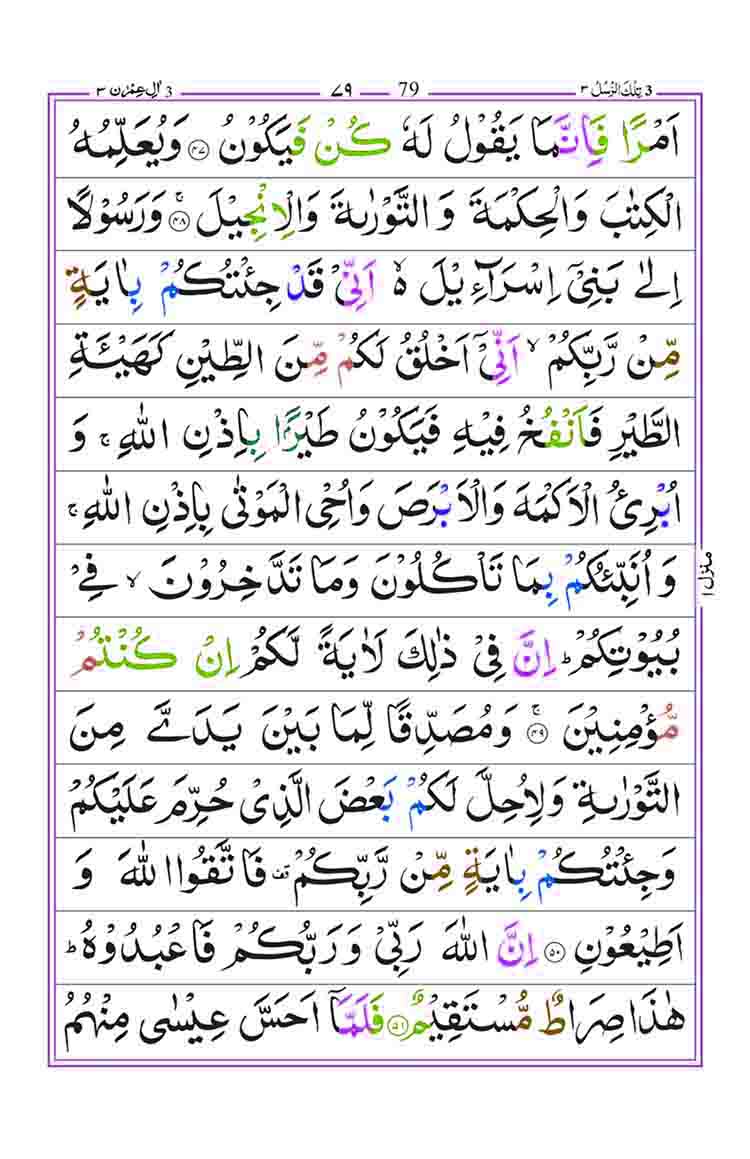 3 تِلْكَ الرُّسُلُ ٣ 79 ٧٩ 3 اٰلِ عِمْرٰن ٣
اَمْرًا فَاِنَّمَا يَقُوْلُ لَهٗ كُنْ فَيَكُوْنُ ۝۴۷ وَيُعَلِّمُهُ
الْكِتٰبَ وَالْحِكْمَةَ وَ التَّوْرٰىةَ وَالْاِنْجِيْلَ ۝۴۸ۚ وَرَسُوْلًا
اِلٰى بَنِيْۤ اِسْرَآءِيْلَ ۙ۬ اَنِّيْ قَدْ جِئْتُكُمْ بِاٰيَةٍ
مِّنْ رَّبِّكُمْ ۙ اَنِّيْۤ اَخْلُقُ لَكُمْ مِّنَ الطِّيْنِ كَهَيْـَٔةِ
الطَّيْرِ فَاَنْفُخُ فِيْهِ فَيَكُوْنُ طَيْرًۢا بِاِذْنِ اللّٰهِ ۚ وَ
اُبْرِئُ الْاَكْمَهَ وَالْاَبْرَصَ وَاُحْيِ الْمَوْتٰى بِاِذْنِ اللّٰهِ ۚ
وَ اُنَبِّئُكُمْ بِمَا تَاْكُلُوْنَ وَمَا تَدَّخِرُوْنَ ۙ فِيْ
بُيُوْتِكُمْ ؕ اِنَّ فِيْ ذٰلِكَ لَاٰيَةً لَّكُمْ اِنْ كُنْتُمْ
مُّؤْمِنِيْنَ ۝۴۹ۚ وَمُصَدِّقًا لِّمَا بَيْنَ يَدَيَّ مِنَ
التَّوْرٰىةِ وَلِاُحِلَّ لَكُمْ بَعْضَ الَّذِيْ حُرِّمَ عَلَيْكُمْ
وَجِئْتُكُمْ بِاٰيَةٍ مِّنْ رَّبِّكُمْ ۫ فَاتَّقُوا اللّٰهَ وَ
اَطِيْعُوْنِ ۝۵۰ اِنَّ اللّٰهَ رَبِّيْ وَرَبُّكُمْ فَاعْبُدُوْهُ ؕ
هٰذَا صِرَاطٌ مُّسْتَقِيْمٌ ۝۵۱ فَلَمَّاۤ اَحَسَّ عِيْسٰى مِنْهُمُ
منزل ١